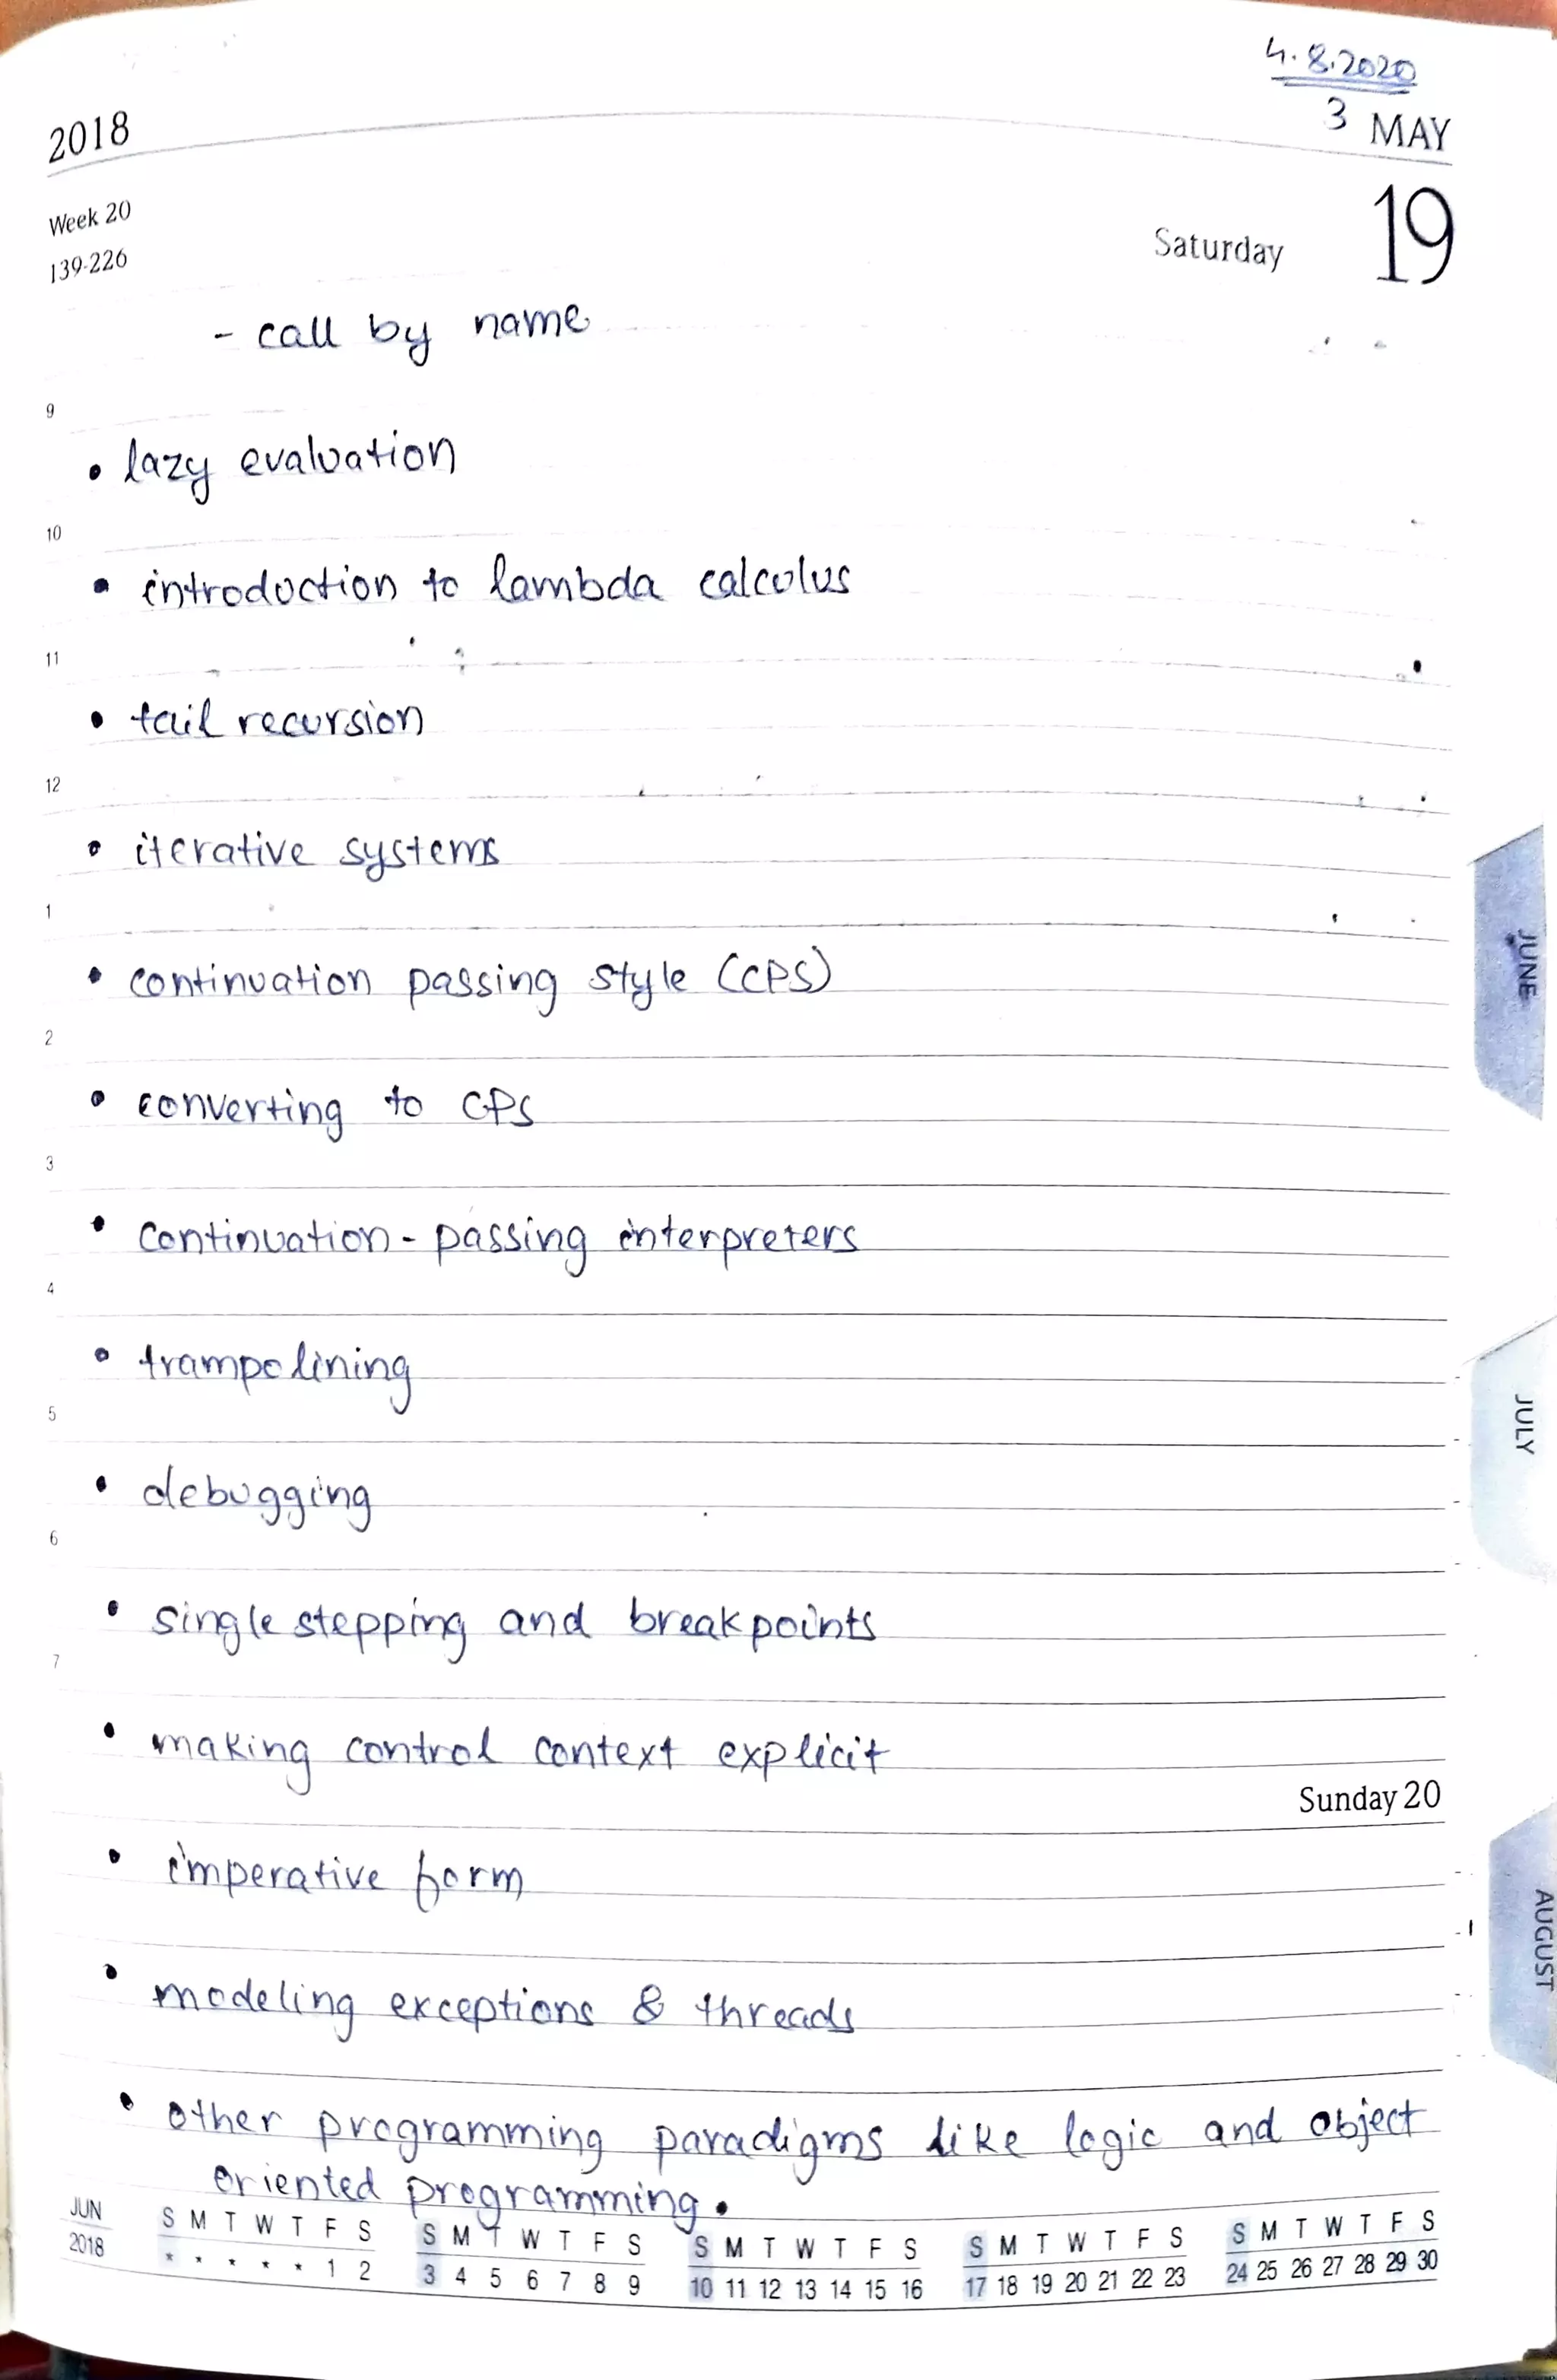 4.8.2020
2018
3 MAY
Week 20
139-226
Saturday 19
- call by name
9
• lazy evaluation
10
• introduction to lambda calculus
11
• tail recursion
12
• iterative systems
1
• continuation passing style (CPS)
2
• converting to CPS
3
• continuation-passing interpreters
4
• trampolining
5
• debugging
6
• single stepping and breakpoints
7
• making control context explicit
Sunday 20
• imperative form
• modeling exceptions & threads
• other programming paradigms like logic and object
oriented programming.
JUN S M T W T F S S M T W T F S S M T W T F S S M T W T F S S M T W T F S
2018 * * * * * 1 2 3 4 5 6 7 8 9 10 11 12 13 14 15 16 17 18 19 20 21 22 23 24 25 26 27 28 29 30
JUNE
JULY
AUGUST